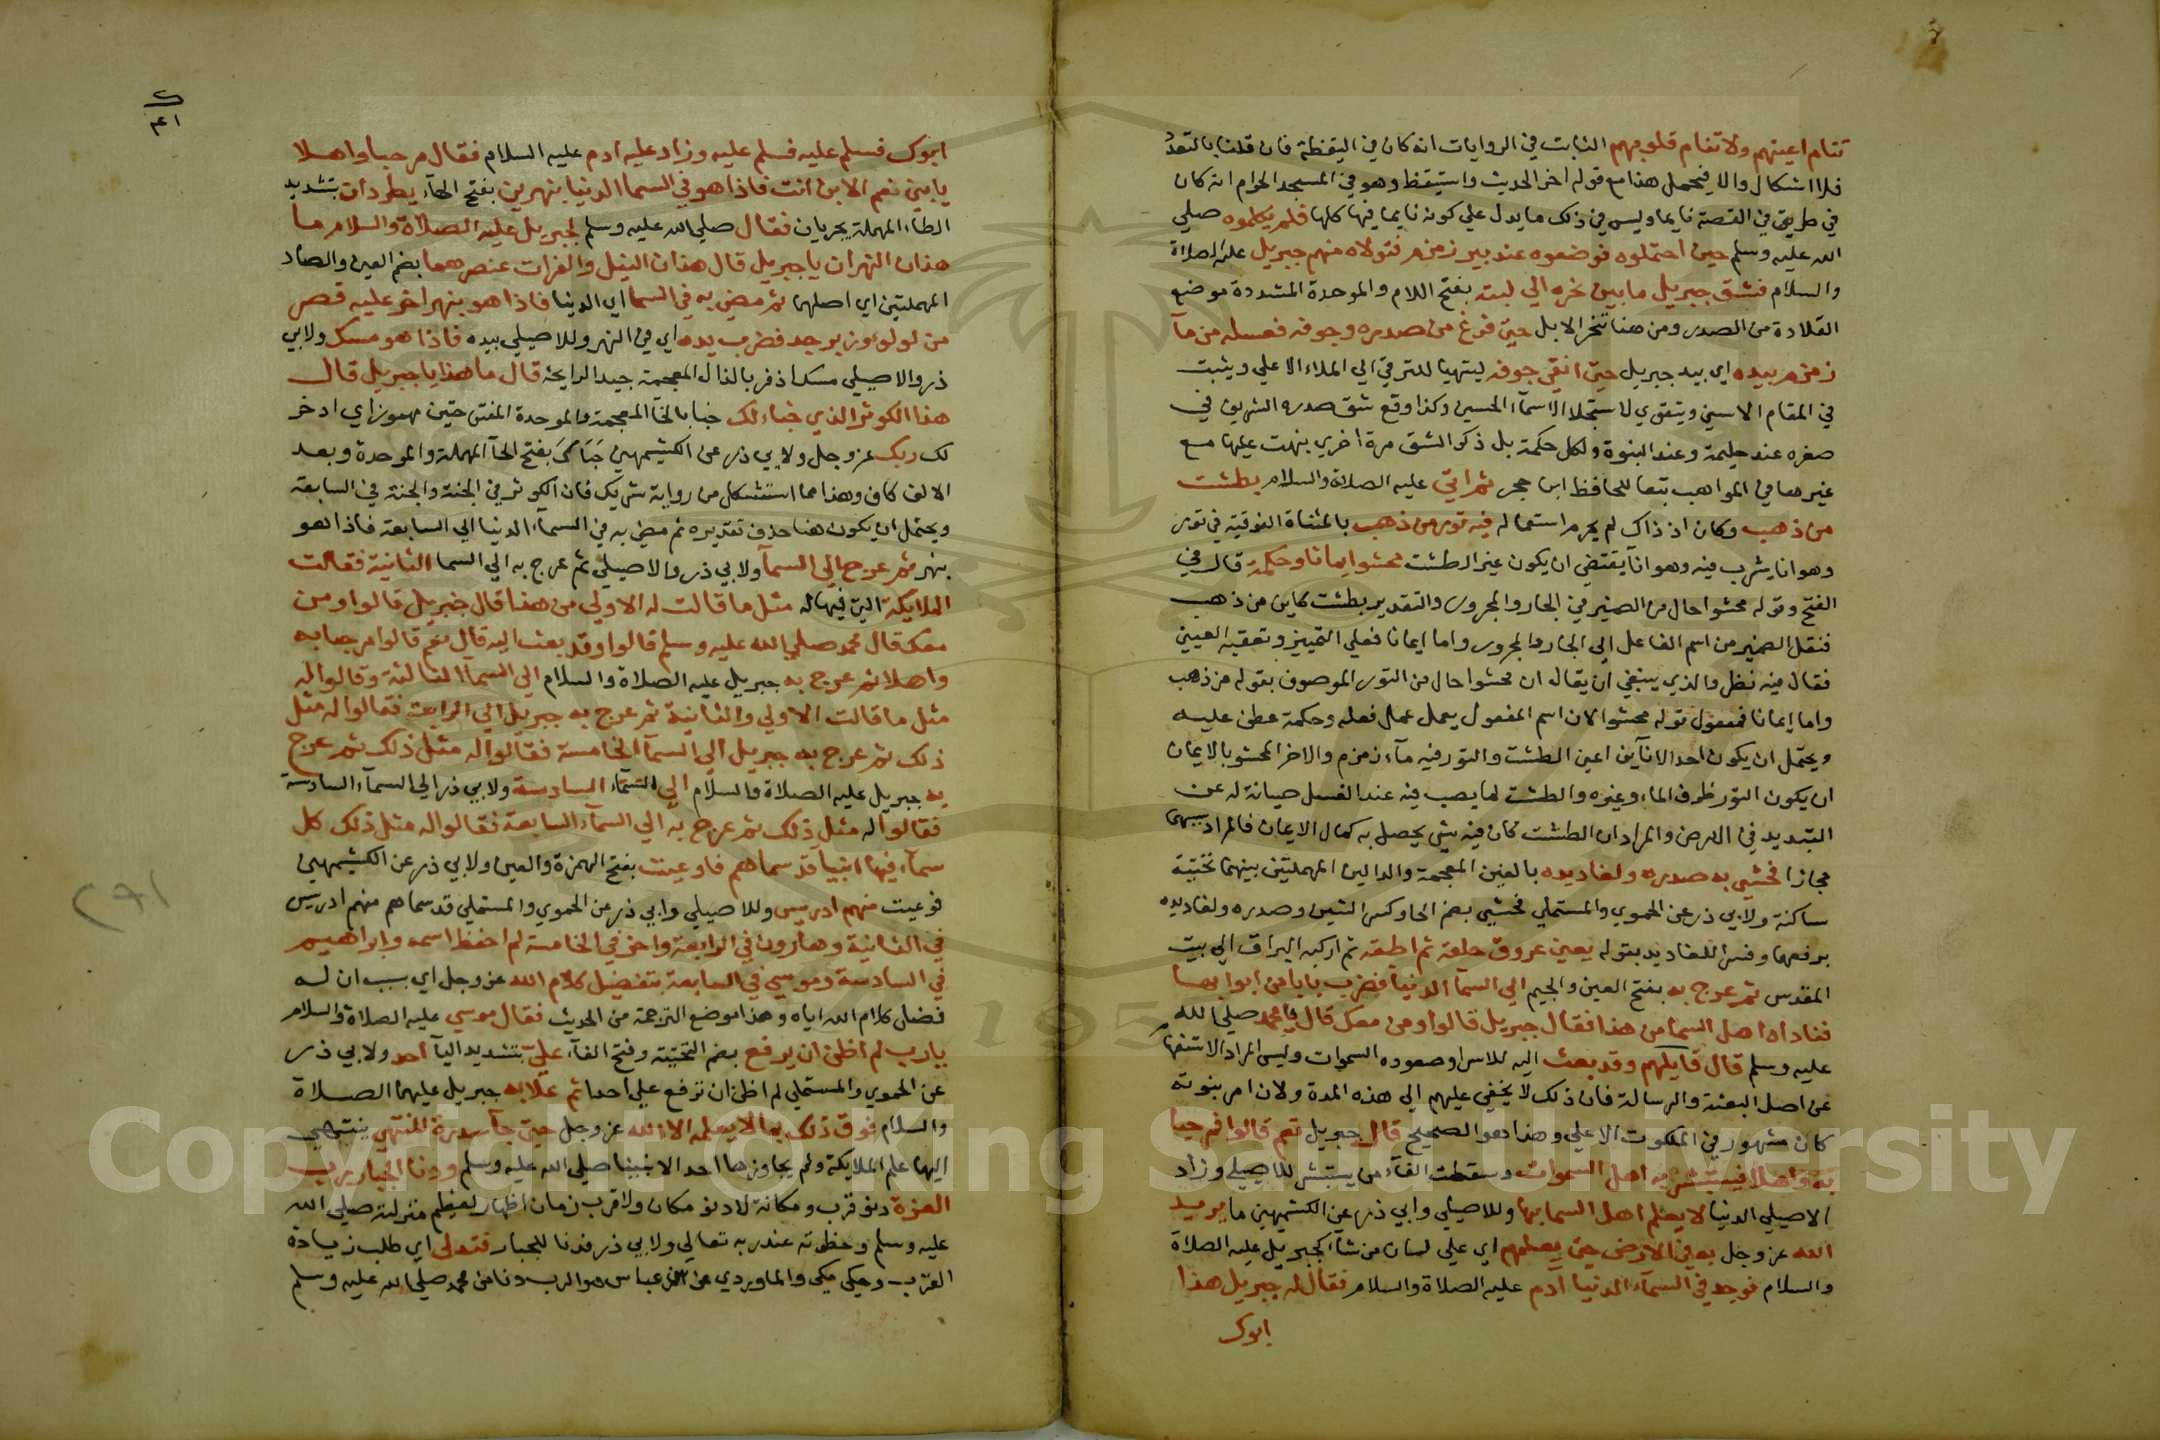 تنام اعينهم ولا تنام قلوبهم الثابت في الروايات انه كان في اليقظة فان قلنا بالتعدد
فلا اشكال والا فيحمل هذا مع قوله اخر الحديث واستيقظ وهو في المسجد الحرام انه كان
في طرفي القصة نايما وليس في ذلك ما يدل علي كونه نايما فيها كلها فلم يكلموه صلي
الله عليه وسلم حين احتملوه فوضعوه عند بير زمزم فتولاه منهم جبريل عليه الصلاة
والسلام فشق جبريل ما بين نحره الي لبته بفتح اللام والموحدة المشددة موضع
القلادة من الصدر ومن هنا تنحر الابل حتي فرغ من صدره وجوفه فغسله من مآ
زمزم بيده اي بيد جبريل حتي انقي جوفه ليتهيا للترقي الي الملاء الاعلي ويثبت
في المقام الاسني ويتقوي لاستجلا الاسمآ الحسني وكذا وقع شق صدره الشريف في
صغره عند حليمة وعند النبوة ولكل حكمة بل ذكر الشق مرة اخري نبهت عليها مع
غيرها في المواهب تبعا للحافظ ابن حجر ثم اتي عليه الصلاة والسلام بطشت
من ذهب وكان اذ ذاك لم يحرم استعماله فيه تور من ذهب بالمثناة الفوقية في تور
وهو انا يشرب فيه وهو انآ يقتضي ان يكون غير الطشت محشوا ايمانا وحكمة قال في
الفتح وقوله محشوا حال من الضمير في الجار والمجرور والتقدير بطشت كاين من ذهب
فنقل الضمير من اسم الفاعل الي الجار والمجرور واما ايمانا فعلي التمييز وتعقبه العيني
فقال فيه نظر والذي ينبغي ان يقال ان محشوا حال من التور الموصوف بقوله من ذهب
واما ايمانا فمفعول قوله محشوا لان اسم المفعول يعمل عمل فعله وحكمة عطف عليه
ويحتمل ان يكون احد الانآين اعين الطشت والتور فيه مآء زمزم والاخر المحشو بالايمان
ان يكون التور ظرف الماء وغيره والطشت لما يصب فيه عند الغسل صيانة له عن
التبديد في الارض والمراد ان الطشت كان فيه شي يحصل به كمال الايمان فالمراد سببهما
مجازا فحشي به صدره ولغاديده بالغين المعجمة والدالين المهملتين بينهما تحتية
ساكنة ولابي ذر عن الحموي والمستملي فحشي بضم الحا وكسر الشين وصدره ولغاديده
برفعهما وفسر اللغاديد بقوله يعني عروق حلقه ثم اطبقه ثم اركبه البراق الي بيت
المقدس ثم عرج به بفتح العين والجيم الي السمآ الدنيا فضرب بابا من ابوابها
فناداه اهل السما من هذا فقال جبريل قالوا ومن معك قال محمد صلي الله
عليه وسلم قال قايلهم وقد بعث اليه للاسرا وصعوده السموات وليس المراد الاستفهام
عن اصل البعثة والرسالة فان ذلك لا يخفي عليهم الي هذه المدة ولان امر نبوته
كان مشهورا في الملكوت الاعلي وهذا هو الصحيح قال جبريل نعم قالوا فمرحبا
به واهلا فيستبشر به اهل السموات وسقطت الفآء من يستبشر للاصيلي وزاد
الاصيلي الدنيا لا يعلم اهل السما بما وللاصيلي وابي ذر عن الكشميهني ما يريد
الله عز وجل به في الارض حتي يعلمهم اي علي لسان من شآ كجبريل عليه الصلاة
والسلام فوجد في السمآء الدنيا آدم عليه الصلاة والسلام فقال له جبريل هذا
ابوك
٤١
ابوك فسلم عليه فسلم عليه وزاد عليه ادم عليه السلام فقال مرحبا واهلا
يابني نعم الابن انت فاذا هو في السما الدنيا بنهرين بفتح الهآء يطردان بتشديد
الطآء المهملة يجريان فقال صلي الله عليه وسلم لجبريل عليه الصلاة والسلام ما
هذان النهران يا جبريل قال هذان النيل والفرات عنصرهما بضم العين والصاد
المهملتين اي اصلهما ثم مضي به في السما اي الدنيا فاذا هو بنهر اخر عليه قصر
من لولو وزبرجد فضرب يده اي في النهر وللاصيلي بيده فاذا هو مسك ولابي
ذر والاصيلي مسك اذفر بالذال المعجمة جيد الرايحة قال ما هذا يا جبريل قال
هذا الكوثر الذي خباء لك خبا بالخآ المعجمة والموحدة المفتوحتين مهموز اي ادخر
لك ربك عز وجل ولابي ذر عن الكشميهني حباك بفتح الحآ المهملة والموحدة وبعد
الالف كاف وهذا مما استشكل من رواية شريك فان الكوثر في الجنة والجنة في السابعة
ويحتمل ان يكون هنا حذف تقديره ثم مضي به في السمآء الدنيا الي السابعة فاذا هو
بنهر ثم عرج الي السمآ ولابي ذر والاصيلي ثم عرج به الي السما الثانية فقالت
الملايكة التي فيها له مثل ما قالت له الاولي من هذا قال جبريل قالوا ومن
معك قال محمد صلي الله عليه وسلم قالوا وقد بعث اليه قال نعم قالوا مرحبا به
واهلا ثم عرج به جبريل عليه الصلاة والسلام الي السمآ الثالثة وقالوا له
مثل ما قالت الاولي والثانية ثم عرج به جبريل الي الرابعة فقالوا له مثل
ذلك ثم عرج به جبريل الي السمآ الخامسة فقالوا له مثل ذلك ثم عرج
به جبريل عليه الصلاة والسلام الي السمآء السادسة ولابي ذر الي السمآء السادسة
فقالوا له مثل ذلك ثم عرج به الي السمآء السابعة فقالوا له مثل ذلك كل
سمآء فيها انبيآ قد سماهم فاوعيت بفتح الهمزة والعين ولابي ذر عن الكشميهني
فوعيت منهم ادريس وللاصيلي وابي ذر عن الحموي والمستملي قد سماهم منهم ادريس
في الثانية وهارون في الرابعة واخر في الخامسة لم احفظ اسمه وابراهيم
في السادسة وموسي في السابعة بتفضيل كلام الله عز وجل اي بسبب ان له
فضل كلام الله اياه وهذا موضع الترجمة من الحديث فقال موسي عليه الصلاة والسلام
يارب لم اظن ان يرفع بضم التحتية وفتح الفآء علي بتشديد اليآ احد ولابي ذر
عن الحموي والمستملي لم اظن ان ترفع علي احدا ثم علا به جبريل عليهما الصلاة
والسلام فوق ذلك بما لا يعلمه الا الله عز وجل حتي جآ سدرة المنتهي ينتهي
اليها علم الملايكة ولم يجاوزها احد الا نبينا صلي الله عليه وسلم ودنا الجبار رب
العزة دنو قرب ومكانة لا دنو مكان ولا قرب زمان اظهارا لعظيم منزلته صلي الله
عليه وسلم وحظوته عند ربه تعالي ولابي ذر فدنا للجبار فتدلي اي طلب زيادة
القرب وحكي مكي والماوردي عن ابن عباس هو الرب دنا من محمد صلي الله عليه وسلم
Copyright © King Saud University
195